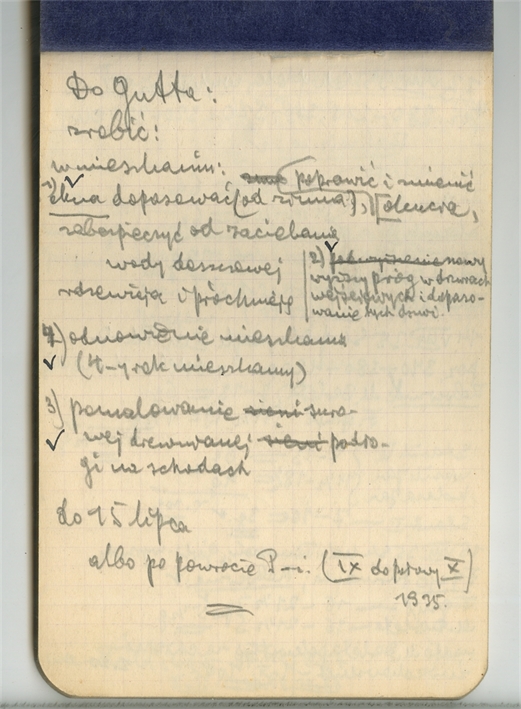 Do Gutta:
zrobić:
w mieszkaniu: poprawić i zmienić
1) okna dopasować (od zimna),
zabezpieczyć od zaciekania
wody deszczowej
rdzewieją i próchnieją
2) podwyższenie nowy
wyższy próg w drzwiach
wejściowych i dopaso-
wanie tych drzwi.
4) odnowienie mieszkania
(4-y rok mieszkamy)
3) pomalowanie sieni suro-
wej drewnianej sieni podło-
gi na schodach
do 15 lipca
albo po powrocie P-i. (IX do połowy X)
1935.